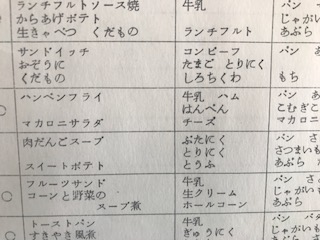 ランチフルトソース焼 牛乳 パン
からあげポテト じゃがい
生きゃべつ くだもの ランチフルト あぶら
サンドイッチ コンビーフ パン
おぞうに たまご とりにく
くだもの しろちくわ もち
ハンペンフライ 牛乳 ハム パン
はんぺん こむぎこ
マカロニサラダ チーズ マカロニ
肉だんごスープ ぶたにく パン
とりにく さつまいも
スイートポテト とうふ あぶら
フルーツサンド 牛乳 パン
コーンと野菜の 生クリーム じゃがいも
スープ煮 ホールコーン あぶら
トーストパン 牛乳 パン
すきやき風煮 ぎゅうにく じゃがい